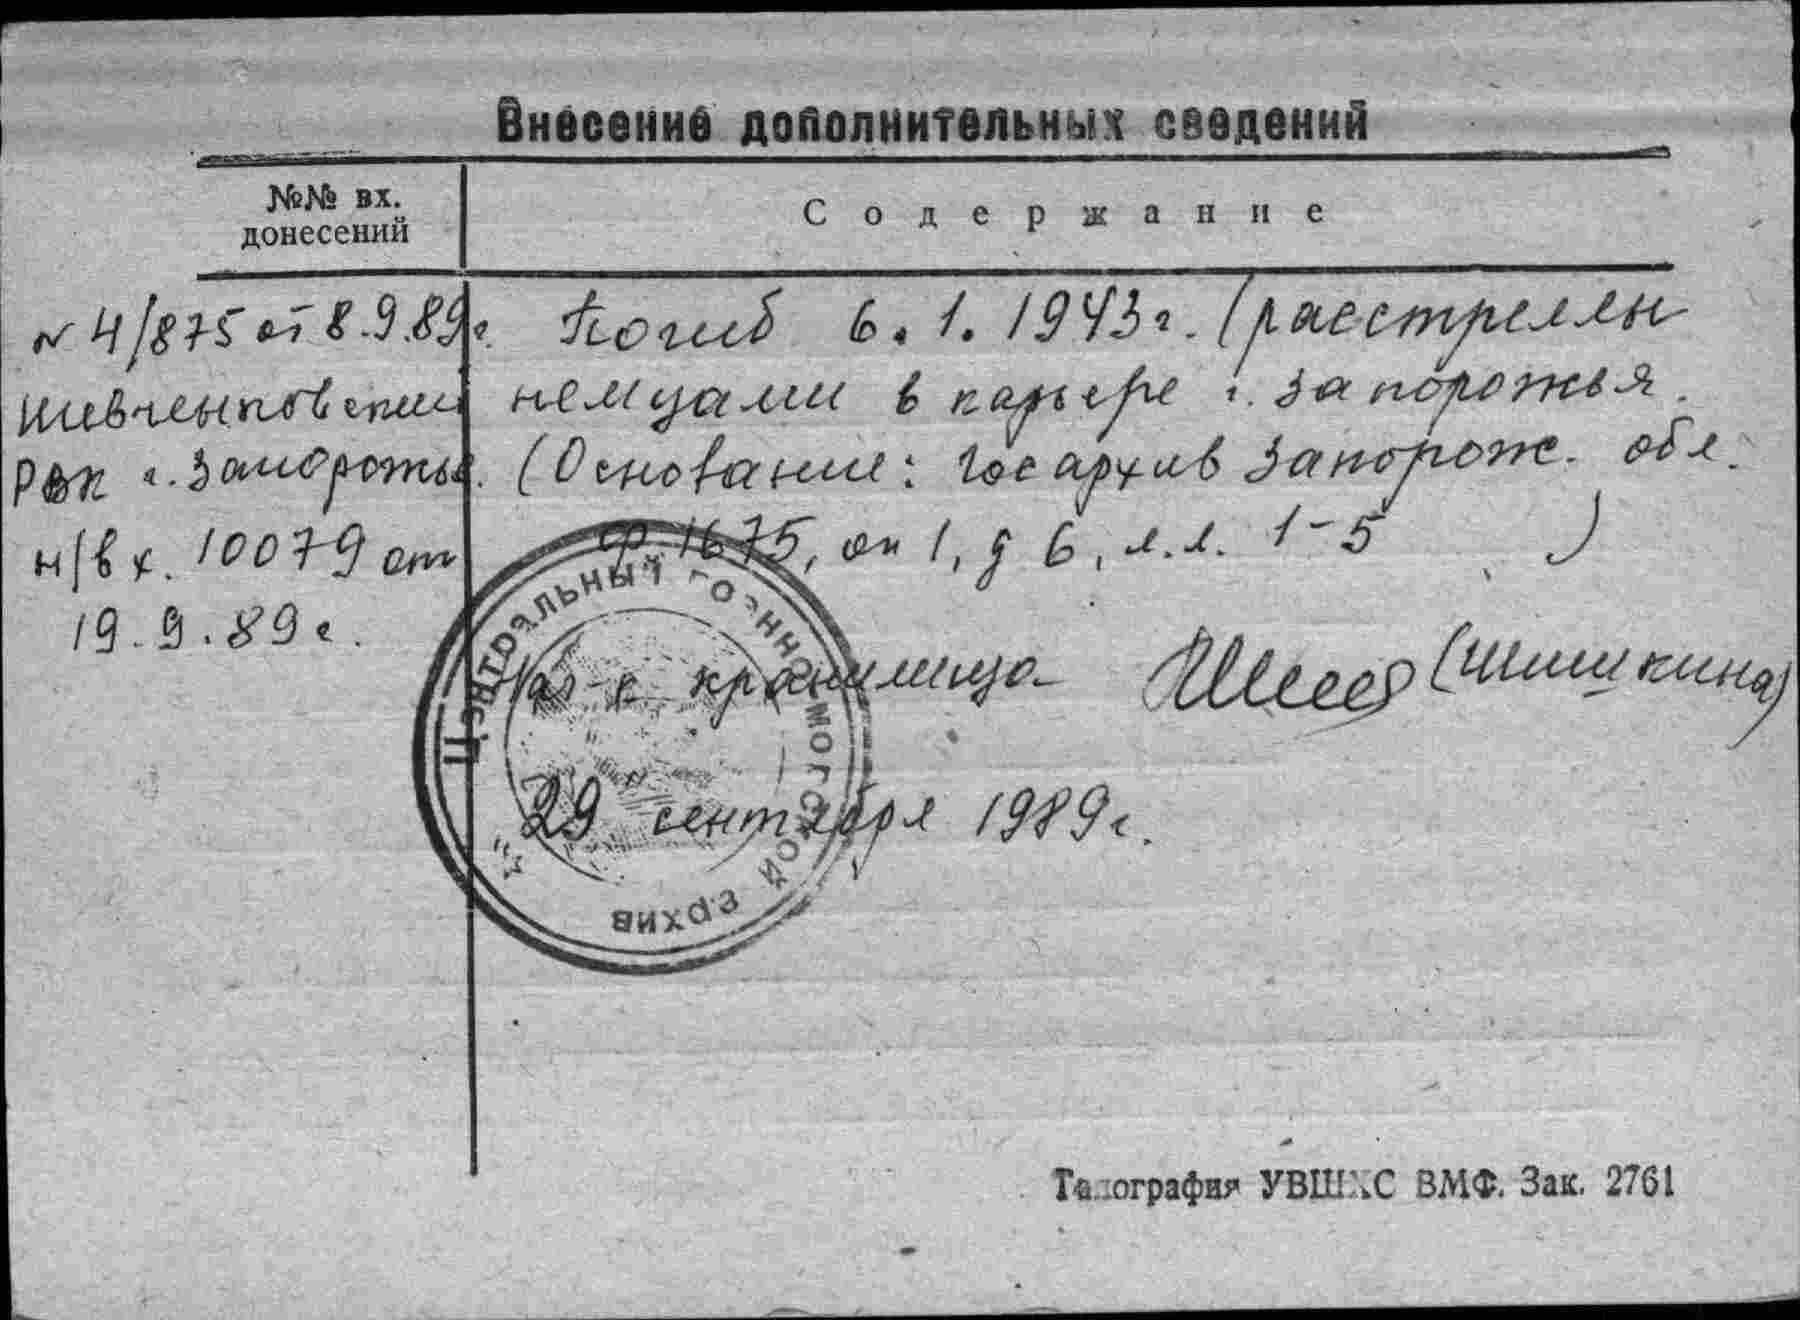 Внесение дополнительных сведений
№№ вх.
донесений
Содержание
N 4/875 от 8.9.89г.
Шевченковский
РВК г. Запорожья.
н/вх. 10079 от
19.9.89г.
Погиб 6.1.1943г. (расстрелян
немцами в карьере г. Запорожья.
(Основание: Госархив Запорож. обл.
ф 1675, оп 1, д 6, л.л. 1-5 )
Нач-к хранилища (Шишкина)
29 сентября 1989г.
Центральный военно-морской архив
Типография УВШКС ВМФ. Зак. 2761